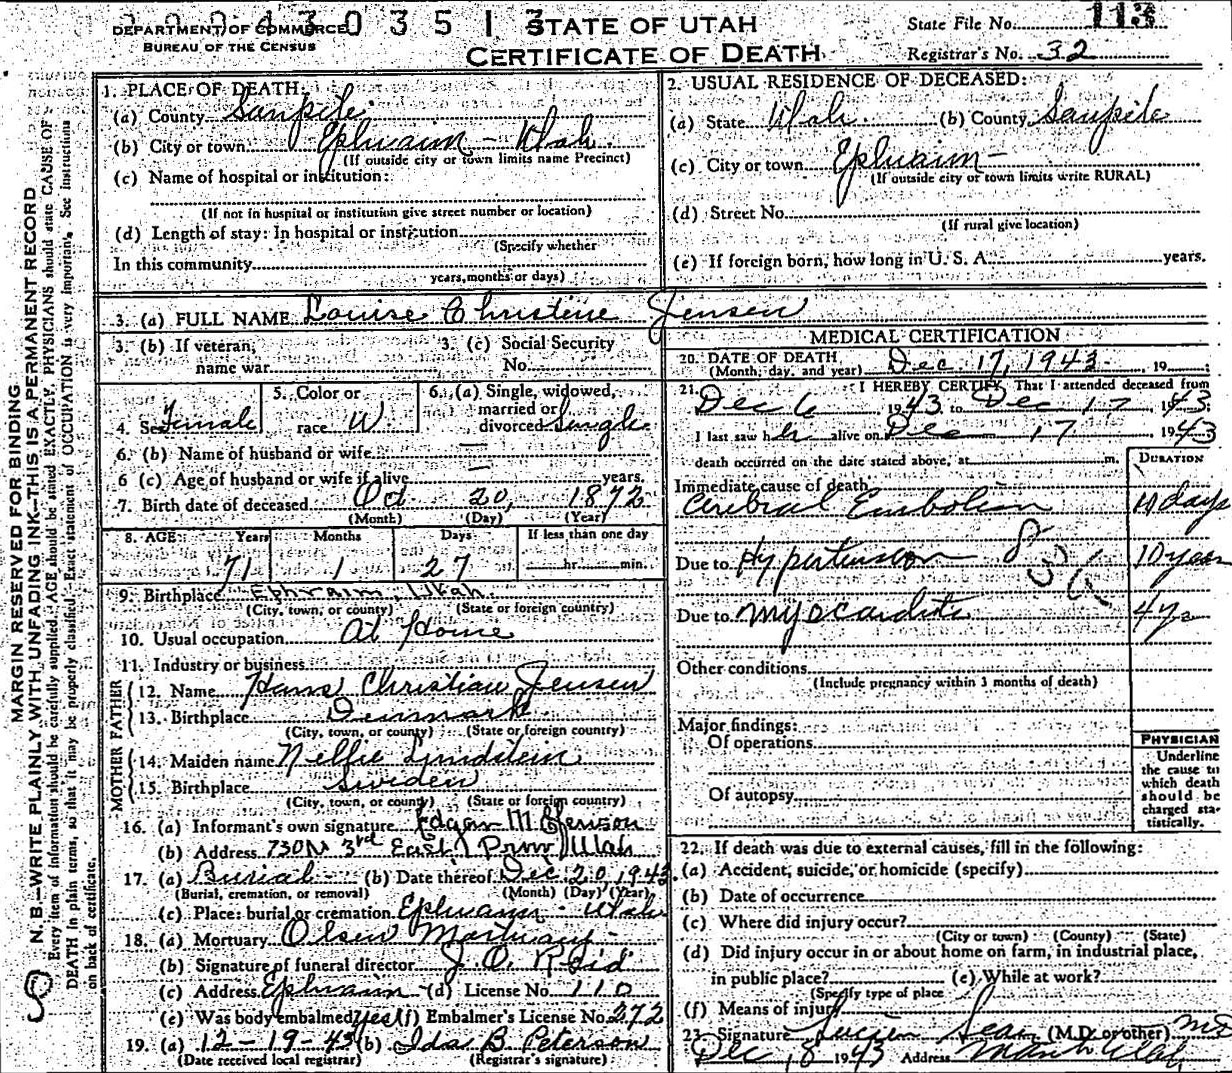 2 0 0 4 3 0 3 5 1 3
DEPARTMENT OF COMMERCE
BUREAU OF THE CENSUS
STATE OF UTAH
CERTIFICATE OF DEATH
State File No. 113
Registrar's No. 32
MARGIN RESERVED FOR BINDING
N. B.—WRITE PLAINLY WITH UNFADING INK—THIS IS A PERMANENT RECORD
Every item of information should be carefully supplied. AGE should be stated EXACTLY. PHYSICIANS should state CAUSE OF
DEATH in plain terms, so that it may be properly classified. Exact statement of OCCUPATION is very important. See instructions
on back of certificate.
1. PLACE OF DEATH:
(a) County Sanpete
(b) City or town Ephraim - Utah.
(If outside city or town limits name Precinct)
(c) Name of hospital or institution:
(If not in hospital or institution give street number or location)
(d) Length of stay: In hospital or institution
(Specify whether
In this community
years, months or days)
2. USUAL RESIDENCE OF DECEASED:
(a) State Utah (b) County Sanpete
(c) City or town Ephraim -
(If outside city or town limits write RURAL)
(d) Street No.
(If rural give location)
(e) If foreign born, how long in U. S. A. years.
3. (a) FULL NAME Louise Christene Jensen
3. (b) If veteran, name war
3. (c) Social Security No.
4. Sex Female
5. Color or race W.
6. (a) Single, widowed, married or divorced Single
6. (b) Name of husband or wife —
6 (c) Age of husband or wife if alive — years.
7. Birth date of deceased Oct 20, 1872
(Month) (Day) (Year)
8. AGE: Years Months Days If less than one day
71 1 27 hr. min.
9. Birthplace Ephraim, Utah.
(City, town, or county) (State or foreign country)
10. Usual occupation At Home
11. Industry or business
FATHER
12. Name Hans Christian Jensen
13. Birthplace Denmark
(City, town, or county) (State or foreign country)
MOTHER
14. Maiden name Nellie
15. Birthplace Sweden
(City, town, or county) (State or foreign country)
16. (a) Informant's own signature Edgar M. Jenson
(b) Address 730 N 3rd East, Provo, Utah
17. (a) Burial (b) Date thereof Dec 20 1943
(Burial, cremation, or removal) (Month) (Day) (Year)
(c) Place: burial or cremation Ephraim - Utah
18. (a) Mortuary Olsen Mortuary -
(b) Signature of funeral director J. O.
(c) Address Ephraim - (d) License No. 110
(e) Was body embalmed yes (f) Embalmer's License No. 272
19. (a) 12-19-43 (b) Ida B Peterson
(Date received local registrar) (Registrar's signature)
MEDICAL CERTIFICATION
20. DATE OF DEATH Dec. 17, 1943, 19
(Month, day, and year)
21. I HEREBY CERTIFY, That I attended deceased from
Dec 6 1943 to Dec 17 1943
I last saw her alive on Dec 17, 1943
death occurred on the date stated above, at m.
DURATION
Immediate cause of death
Cerebral Embolism 11 days
Due to Hypertension 10 years
Due to Myocarditis 4 yrs
Other conditions
(Include pregnancy within 3 months of death)
Major findings:
Of operations
Of autopsy
PHYSICIAN
Underline
the cause to
which death
should be
charged sta-
tistically.
22. If death was due to external causes, fill in the following:
(a) Accident, suicide, or homicide (specify)
(b) Date of occurrence
(c) Where did injury occur?
(City or town) (County) (State)
(d) Did injury occur in or about home on farm, in industrial place,
in public place? (e) While at work?
(Specify type of place
(f) Means of injury
23. Signature Lucien Sears (M.D. or other) MD
Dec 18 1943 Address Manti Utah